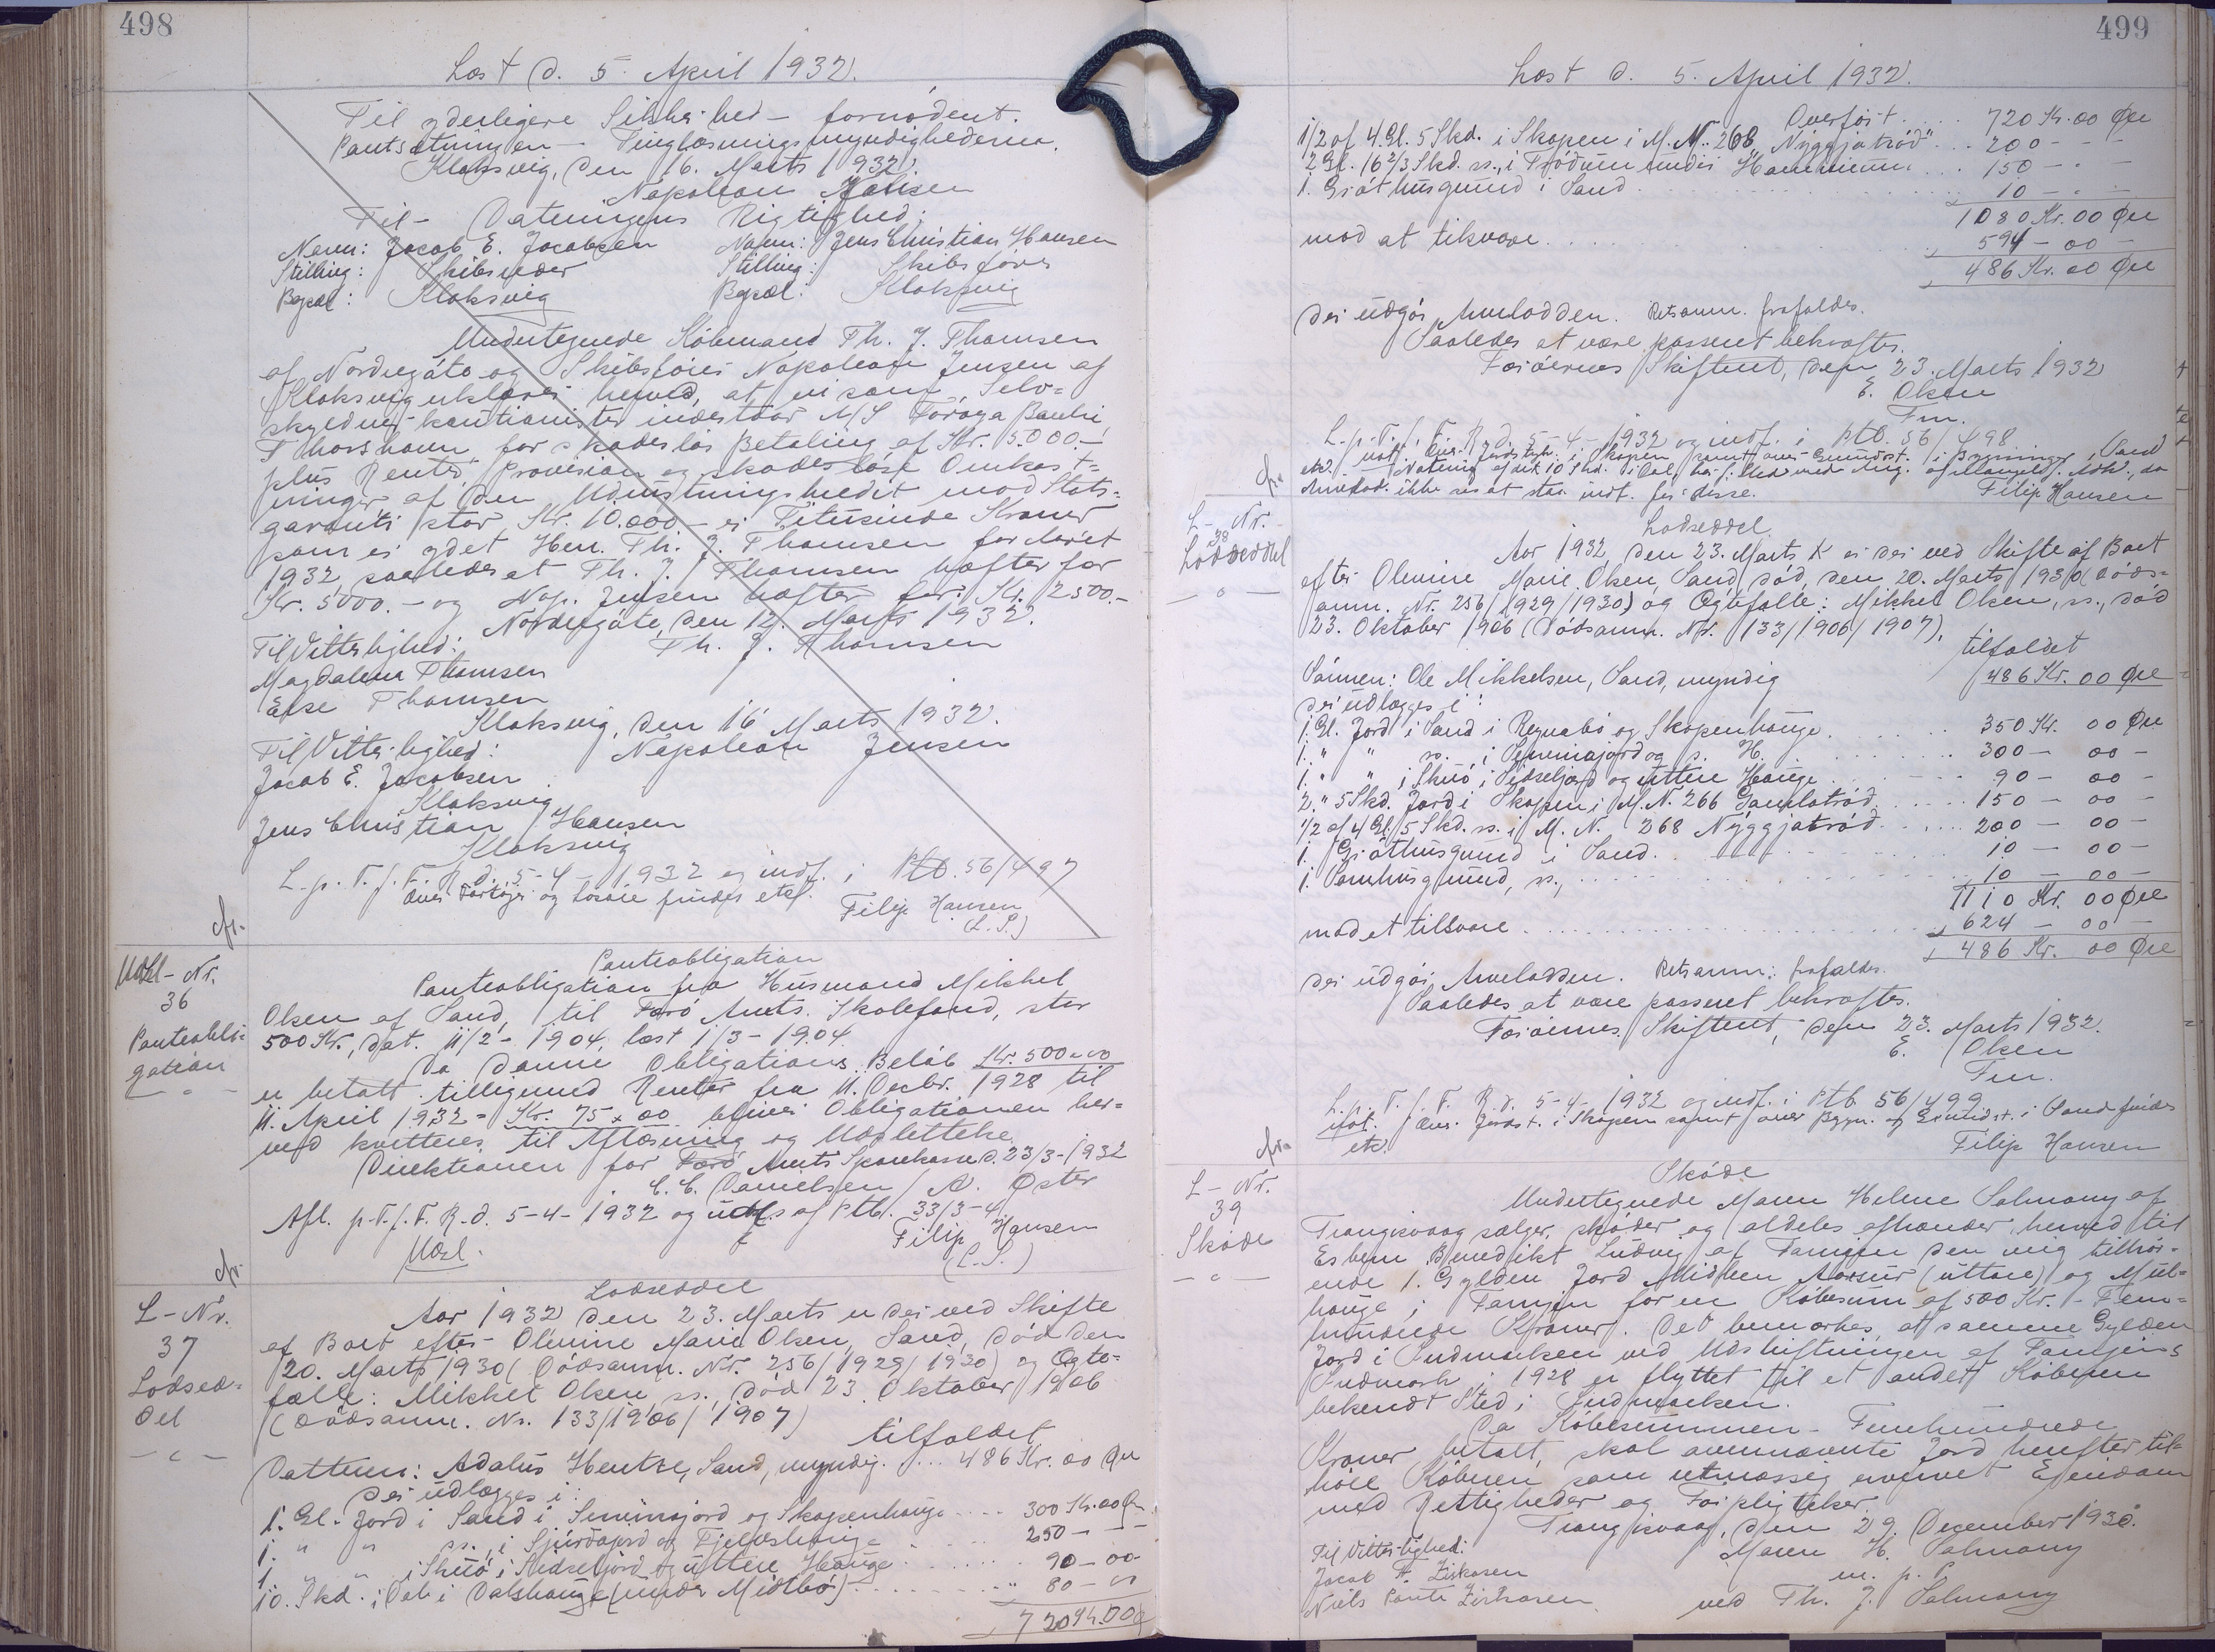 498
Læst d. 5. April 1932.
Til yderligere Sikkerhed – fornödent.
Pantsætningen – Tinglæsningsmyndighederne.
Klaksvig, den 16. Marts 1932.
Napoleon Jensen
Til – Dateringens Rigtighed:
Navn: Jacob E. Jacobsen Navn: Jens Christian Hansen
Stilling: Skibsreder Stilling: Skibsförer
Bopæl: Klaksvig Bopæl: Klaksvig
Undertegnede Köbmand Th. J. Thomsen
af Nordregöte og Skibsförer Napoleon Jensen af
Klaksvig erklærer herved, at vi som Selv=
skyldner-kautionister indestaar A/S Föroya Banki,
Thorshavn for skadeslös Betaling af Kr. 5.000.–
plus Renter, Provision og skadeslöse Omkost=
ninger af den Udrustningskredit mod Stats=
garanti stor Kr. 10.000 – er Titusinde Kroner
som er ydet Herr. Th. J. Thomsen for Aaret
1932, saaledes at Th. J. Thomsen hæfter for
Kr. 5000.– og Nap. Jensen hæfter for: Kr. 2500.–
Nordregöte, den 12. Marts 1932.
Til Vitterlighed: Th. J. Thomsen
Magdalena Thomsen
Else Thomsen
Klaksvig, den 16 Marts 1932.
Til Vitterlighed: Napoleon Jensen
Jacob E. Jacobsen
Klaksvig
Jens Christian Hansen
Klaksvig
L. p. T. f. F. R. d. 5-4-1932 og indf. i Ptb. 56/497
over Fartöjer og Lösöre findes etc.
Filip Hansen
(L. S.)
Udsl-Nr.
36
Panteobli=
gation
Panteobligation
Panteobligation fra Husmand Mikkel
Olsen af Sand, til Færö Amts. Skolefond, stor
500 Kr., dat. 11/2 – 1904, læst 1/3 – 1904.
Da denne Obligations Belöb Kr. 500 – 00
er betalt tilligemed Renter fra 11. Decbr. 1928 til
11. April 1932 = Kr. 75 × 00 bliver Obligationen her=
ved kvitteret til Aflæsning og Udslettelse.
Direktionen for Færö Amts Sparekasse d. 23/3-1932
C. C. Danielsen / A. Öster
Afl. p. T. f. F. R. d. 5-4-1932 og udsl. af Ptb. 33/3-4
Filip Hansen
Udsl. (L. S.)
L – Nr.
37
Lodsed=
del
Lodseddel
Aar 1932 den 23. Marts er der ved Skifte
af Boet efter Olevine Marie Olsen, Sand, död den
20. Marts 1930 (Dödsanm. Nr. 256/1929/1930) og Ægte=
fælle: Mikkel Olsen, ss., död 23. Oktober 1906
(Dödsanm. Nr. 133/1906/1907)
tilfaldet
Datteren: Adalus Hentze, Sand, myndig. ... 486 Kr. 00 Øre
der udlægges i:
1. Gl. Jord i Sand i Sinnisjord og Skopenhauge .... 300 Kr. 00 Ør.
1. " " ss., i Sjúrdajord og Fjelæshauge 250 – –
1. " " i Skuö i Aidseljord og uttere Hauge 90 – 00 –
10. Skd. i Dal i Dalshauge (under Midtbö) 80 – 00
720 Kr. 00 Ø
499
Læst d. 5. April 1932.
Overfört .... 720 Kr. 00 Øre
1/2 af 4 Gl. 5 Skd. i Skopen i M. N. 268 "Nýggjatröd" ... 200 – – –
2 Gl. 16 2/3 Skd. ss., i Tródum undir Hamrinum .... 150 – – –
1. Gróthúsgrund i Sand 10 – – –
1080 Kr. 00 Øre
mod at tilsvare 594 – 00 –
486 Kr. 00 Øre
der udgör Arvelodden. Retsanm. frafaldes.
Saaledes at være passeret bekræftes.
Færöernes Skifteret, den 23. Marts 1932
E. Olsen
Fm.
L. p. T. f. F. R. d. 5-4-1932 og indf. i Ptb. 56/498
Filip Hansen
L – Nr.
38
Lodseddel
Lodseddel
Aar 1932, den 23. Marts er der ved Skifte af Boet
efter Olevine Marie Olsen, Sand, död, den 20. Marts 1930 (Döds=
anm. Nr. 256/1929/1930) og Ægtefælle: Mikkel Olsen, ss., död
23. Oktober 1906 (Dödsanm. Nr. 133/1906/1907),
tilfaldet
Sönnen: Ole Mikkelsen, Sand, myndig 486 Kr. 00 Øre
der udlægges i:
1. Gl. Jord i Sand i Regnabö og Skopenhauge 350 Kr. 00 Øre
1. " " ss. i Seminajord og s. H. 300 – 00 –
1. " " i Skuö i Aidseljord og uttere Hauge 90 – 00 –
2. " 5 Skd. Jord i Skopen i M. N. 266 Gamlatröd 150 – 00 –
1/2 af 4 Gl. 5 Skd. ss. i M. N. 268 Nýggjatröd 200 – 00 –
1. Gróthúsgrund i Sand 10 – 00 –
1. Sornhusgrund, ss., 10 – 00 –
1110 Kr. 00 Øre
mod at tilsvare 624 – 00 –
486 Kr. 00 Øre
der udgör Arvelodden. Retsanm: frafaldes.
Saaledes at være passeret bekræftes.
Færöernes Skifteret, den 23. Marts 1932.
E. Olsen
Fm.
L. p. T. f. F. R. d. 5-4-1932 og indf. i Ptb 56/499
Not. over Jordst. i Skopen samt over Bygn. og Grundst. i Sand findes
etc. Filip Hansen
L – Nr.
39
Sköde
Sköde
Undertegnede Maren Helene Salmony af
Trangisvaag sælger, sköder og aldeles afhænder herved til
Esbern Benedikt Ludvig af Famjen den mig tilhör=
ende 1. Gylden Jord Midben Aarsur (uttare) og Mul=
hauge i Famjin for en Købesum af 500 Kr. – Fem=
hundrede Kroner. Det bemærkes, at samme Gylden
Jord i Indmarken ved Udskiftningen af Famjins
Indmark i 1928 er flyttet til et andet Köberen
bekendt Sted i Indmarken.
Da Köbesummen – Femhundrede
Kroner betalt, skal ovennævnte Jord herefter til=
höre Köberen som retmæssig erhvervet Ejendom
med Rettigheder og Forpligtelser.
Trangisvaag, den 29. December 1930.
Til Vitterlighed: Maren H. Salmony
Jacob F. Ziskasen m. p. f.
Niels Ponti Ziskasen ved Th. J. Salmony